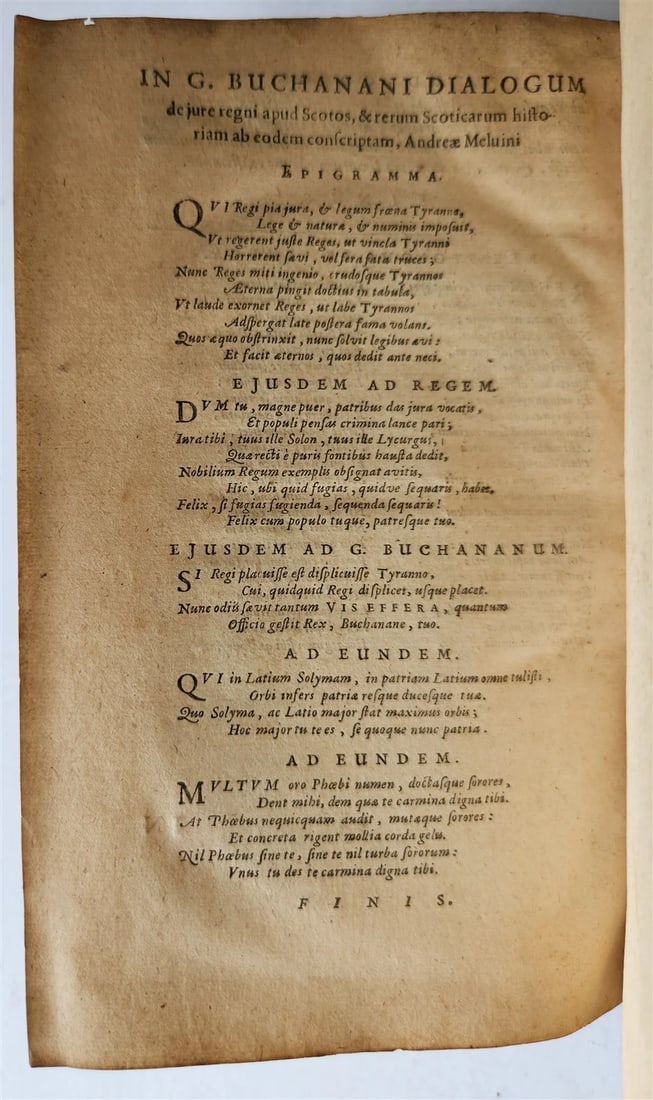 IN G. BUCHANANI DIALOGUM
de jure regni apud Scotos, & rerum Scoticarum histo-
riam ab eodem conscriptam, Andreæ Meluini
EPIGRAMMA.
QVI Regi pia jura, & legum fræna Tyranno,
Lege & naturæ, & numinis imposuit,
Vt regerent juste Reges, ut vincla Tyranni
Horrerent sævi, vel fera fata truces;
Nunc Reges miti ingenio, crudosque Tyrannos
Æterna pingit doctius in tabula,
Vt laude exornet Reges, ut labe Tyrannos
Adspergat late postera fama volans.
Quos æquo obstrinxit, nunc solvit legibus ævi:
Et facit æternos, quos dedit ante neci.
EJUSDEM AD REGEM.
DVM tu, magne puer, patribus das jura vocatis,
Et populi pensas crimina lance pari;
Jura tibi, tuus ille Solon, tuus ille Lycurgus,
Quæ recti è puris fontibus hausta dedit,
Nobilium Regum exemplis obsignat avitis,
Hic, ubi quid fugias, quidve sequaris, habes,
Felix, si fugias fugienda, sequenda sequaris!
Felix cum populo tuque, patresque tuo.
EJUSDEM AD G. BUCHANANUM.
SI Regi placuisse est displicuisse Tyranno,
Cui, quidquid Regi displicet, usque placet.
Nunc odiis sævit tantum VIS EFFERA, quantum
Officio gestit Rex, Buchanane, tuo.
AD EUNDEM.
QVI in Latium Solymam, in patriam Latium omne tulisti,
Orbi infers patriæ resque ducesque tuæ.
Quo Solyma, ac Latio major stat maximus orbis;
Hoc major tu te es, se quoque nunc patria.
AD EUNDEM.
MVLTVM oro Phœbi numen, doctasque sorores,
Dent mihi, dem quæ te carmina digna tibi.
At Phœbus nequicquam audit, mutæque sorores:
Et concreta rigent mollia corda gelu.
Nil Phœbus sine te, sine te nil turba sororum:
Vnus tu des te carmina digna tibi.
FINIS.